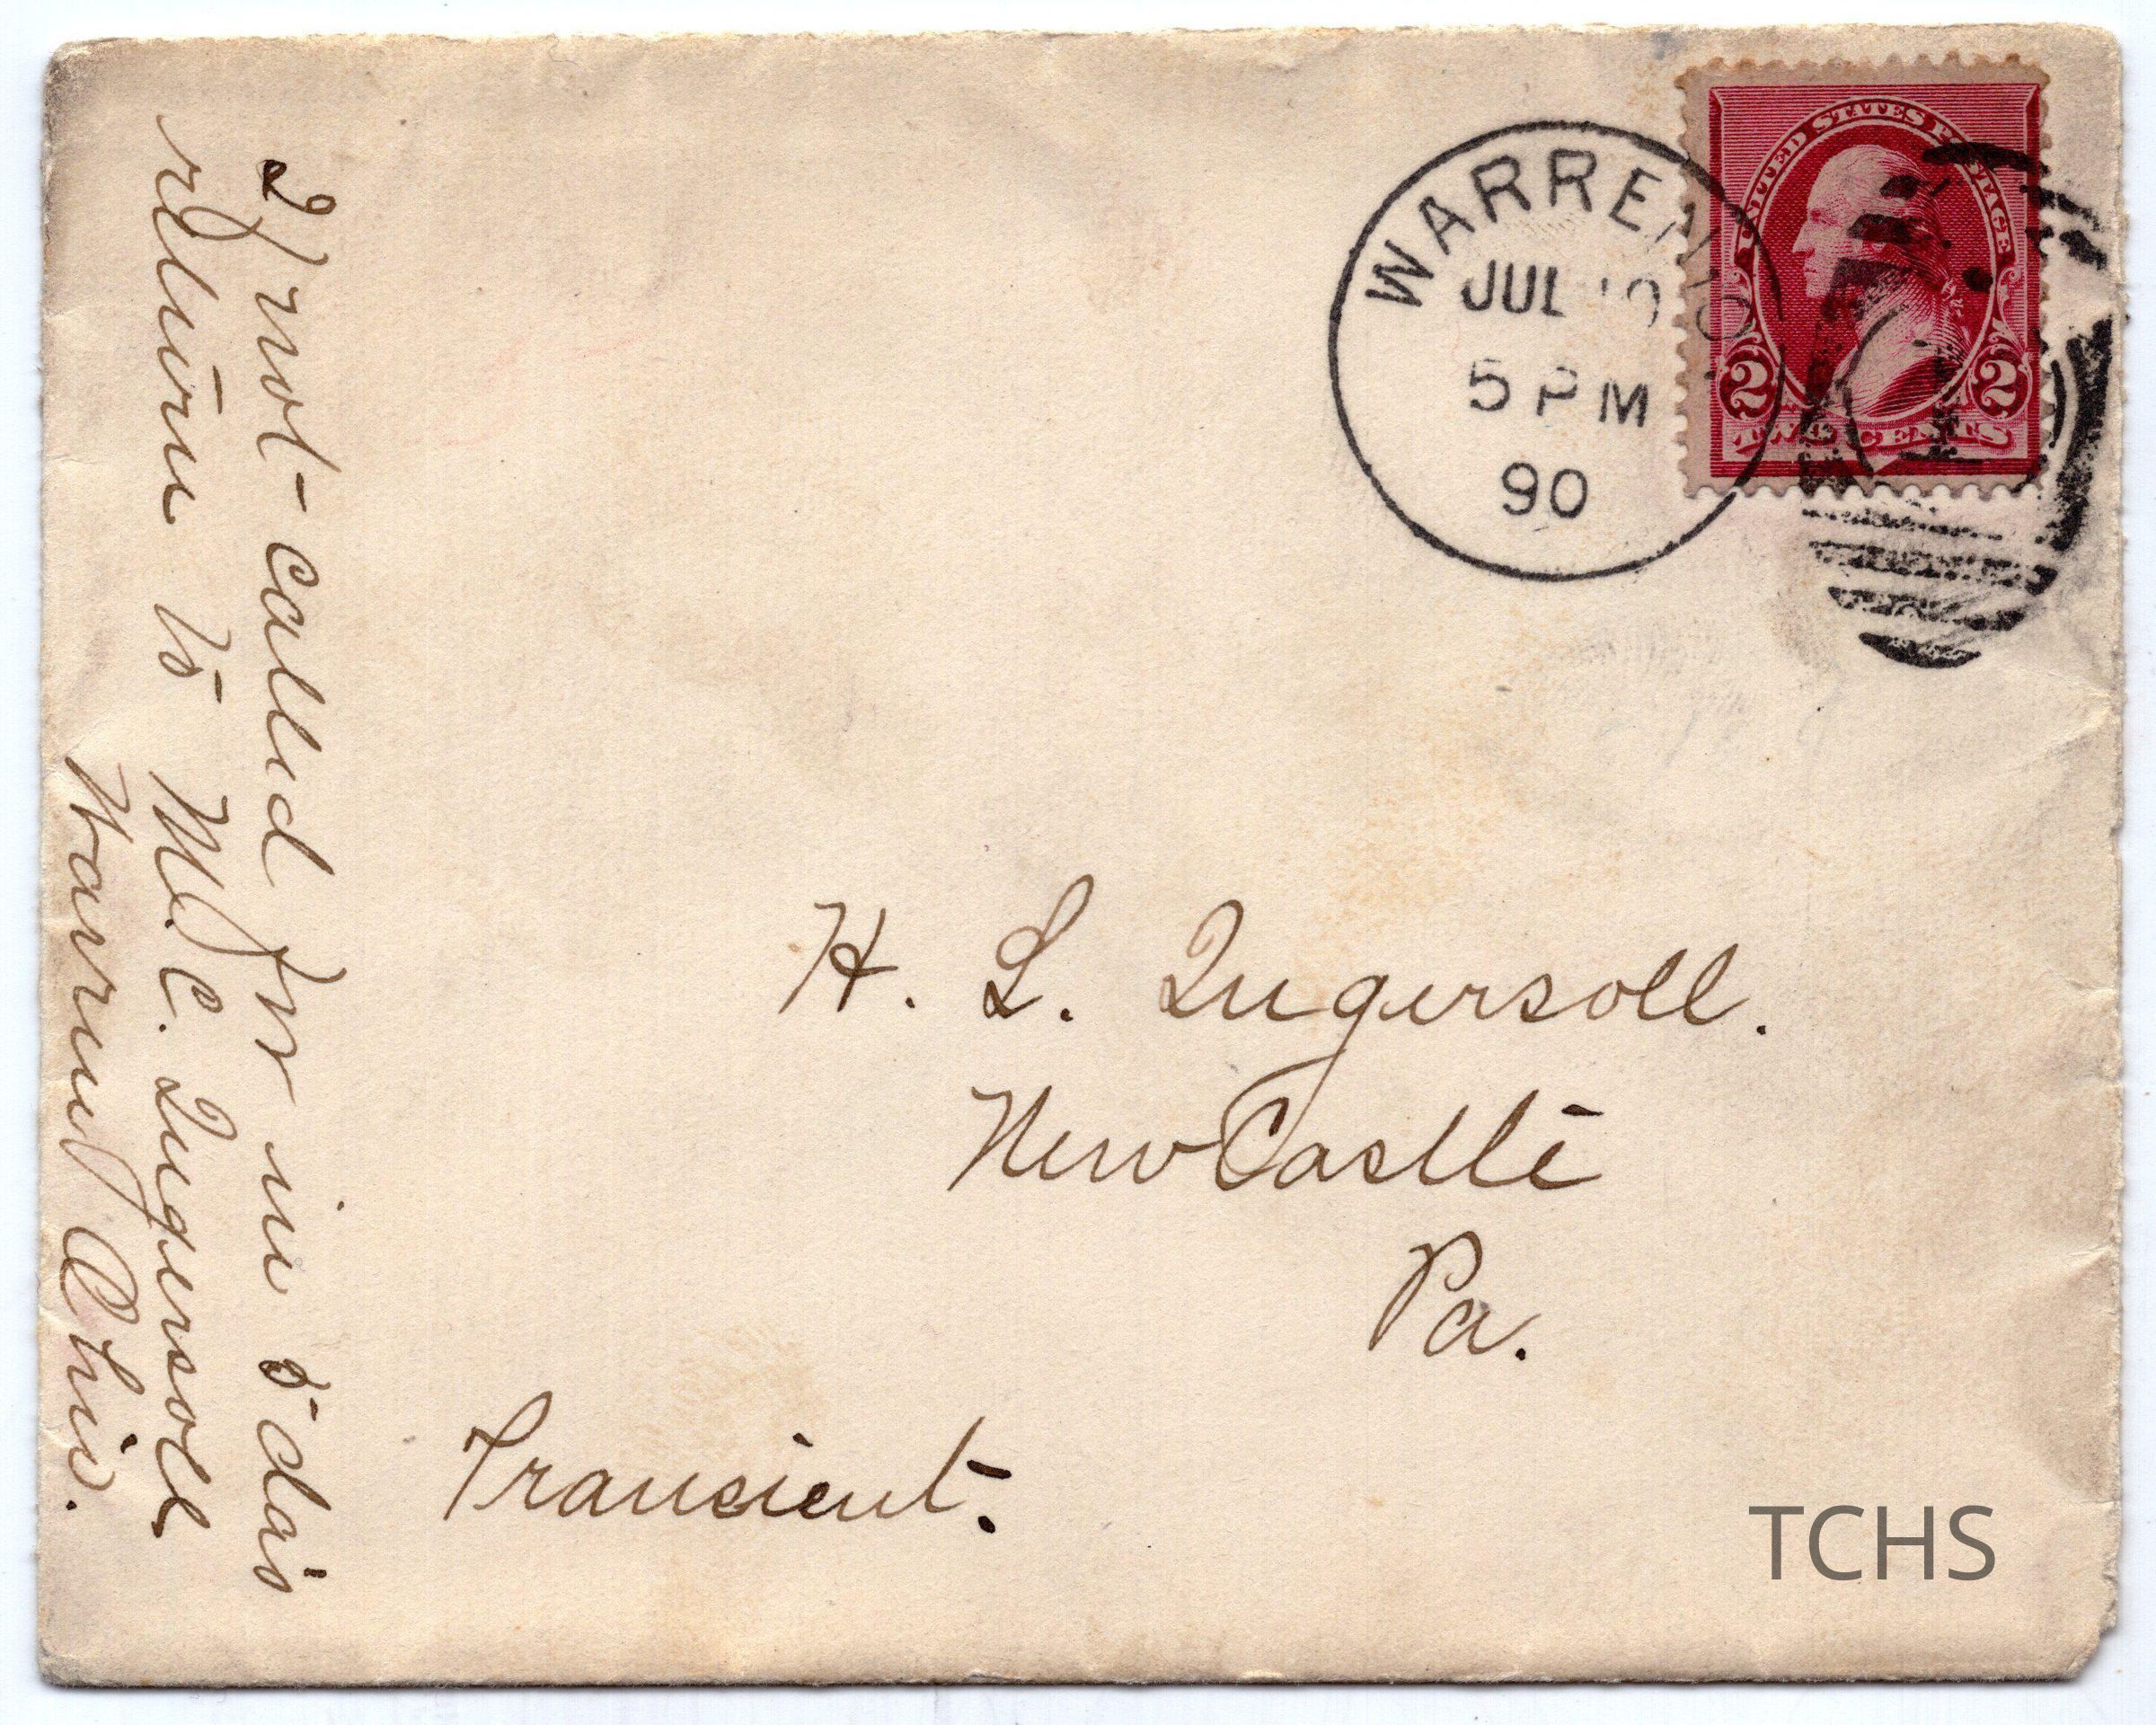 WARREN, O.
JUL
5 PM
90
UNITED STATES POSTAGE
2 2
TWO CENTS
1
If not called for in 5 dais
return to M. C. Ingersoll
Warren, Ohio.
H. L. Ingersoll.
New Castle
Pa.
Transient.
TCHS